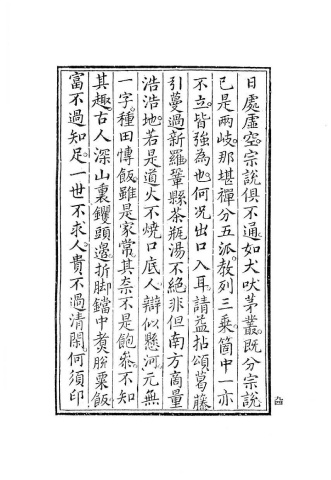 日處虛空。宗說俱不通。如犬吠茅叢。既分宗說
已是兩岐。那堪禪分五派。教列三乘。箇中一亦
不立。皆強為也。何況出口入耳。請益拈頌葛藤
引蔓過新羅。鞏縣茶瓶湯不絕。非但南方商量
浩浩地。若是道火不燒口底人。辯似懸河。元無
一字。種田慱飯。雖是家常。其奈不是飽參。不知
其趣。古人深山裏。钁頭邊。折脚鐺中。煑脫粟飯。
富不過知足。一世不求人。貴不過清閑。何須印